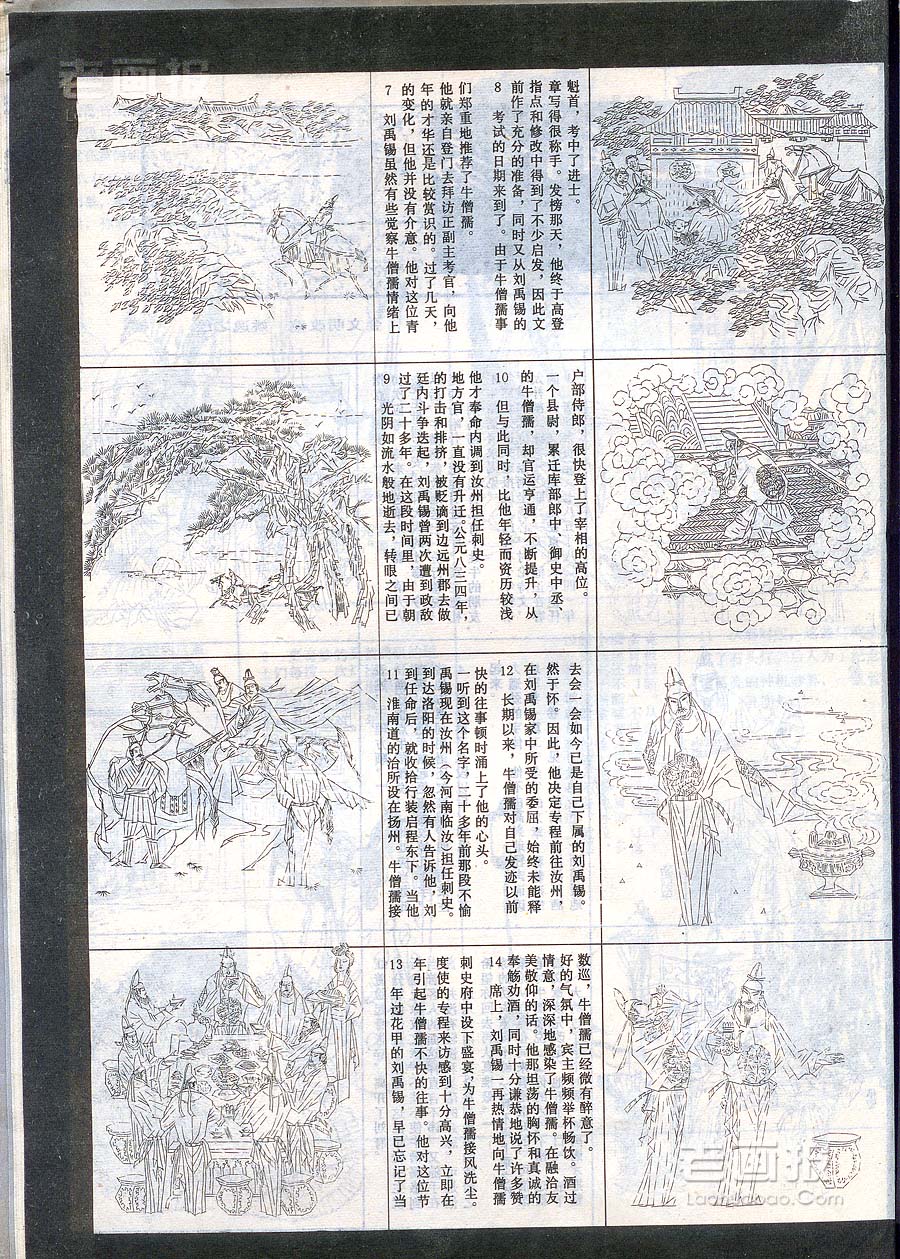 老画报
7 刘禹锡虽然有些觉察牛僧孺情绪上
的变化，但他并没有介意。他对这位青
年的才华还是比较赏识的。过了几天，
他就亲自登门去拜访正副主考官，向他
们郑重地推荐了牛僧孺。
8 考试的日期来到了。由于牛僧孺事
前作了充分的准备，同时又从刘禹锡的
指点和修改中得到了不少启发，因此文
章写得很称手。发榜那天，他终于高登
魁首，考中了进士。
9 光阴如流水般地逝去，转眼之间已
过了二十多年。在这段时间里，由于朝
廷内斗争迭起，刘禹锡曾两次遭到政敌
的打击和排挤，被贬谪到边远州郡去做
地方官，一直没有升迁。公元八三四年，
他才奉命内调到汝州担任刺史。
10 但与此同时，比他年轻而资历较浅
的牛僧孺，却官运亨通，不断提升，从
一个县尉，累迁库部郎中、御史中丞、
户部侍郎，很快登上了宰相的高位。
11 淮南道的治所设在扬州。牛僧孺接
到任命后，就收拾行装启程东下。当他
到达洛阳的时候，忽然有人告诉他，刘
禹锡现在汝州（今河南临汝）担任刺史。
一听到这个名字，二十多年前那段不愉
快的往事顿时涌上了他的心头。
12 长期以来，牛僧孺对自己发迹以前
在刘禹锡家中所受的委屈，始终未能释
然于怀。因此，他决定专程前往汝州，
去会一会如今已是自己下属的刘禹锡。
13 年过花甲的刘禹锡，早已忘记了当
年引起牛僧孺不快的往事。他对这位节
度使的专程来访感到十分高兴，立即在
刺史府中设下盛宴，为牛僧孺接风洗尘。
14 席上，刘禹锡一再热情地向牛僧孺
奉觞劝酒，同时十分谦恭地说了许多赞
美敬仰的话。他那坦荡的胸怀和真诚的
情意，深深地感染了牛僧孺。在融洽友
好的气氛中，宾主频频举杯畅饮。酒过
数巡，牛僧孺已经微有醉意了。
老画报
Laohuabao.Com